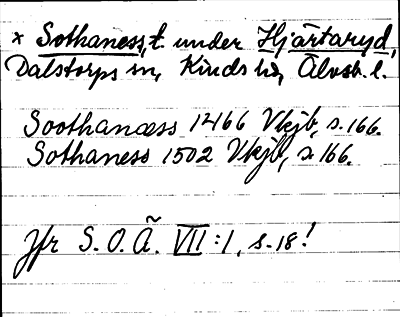 × Sothaness, t. under Hjärtaryd,
Dalstorps sn, Kinds hd, Älvsb. l.
Soothanæss 1466 Vkjb, s. 166.
Sothaness 1502 Vkjb, s. 166.
Jfr S. O. Ä. VII : 1, s. 18!